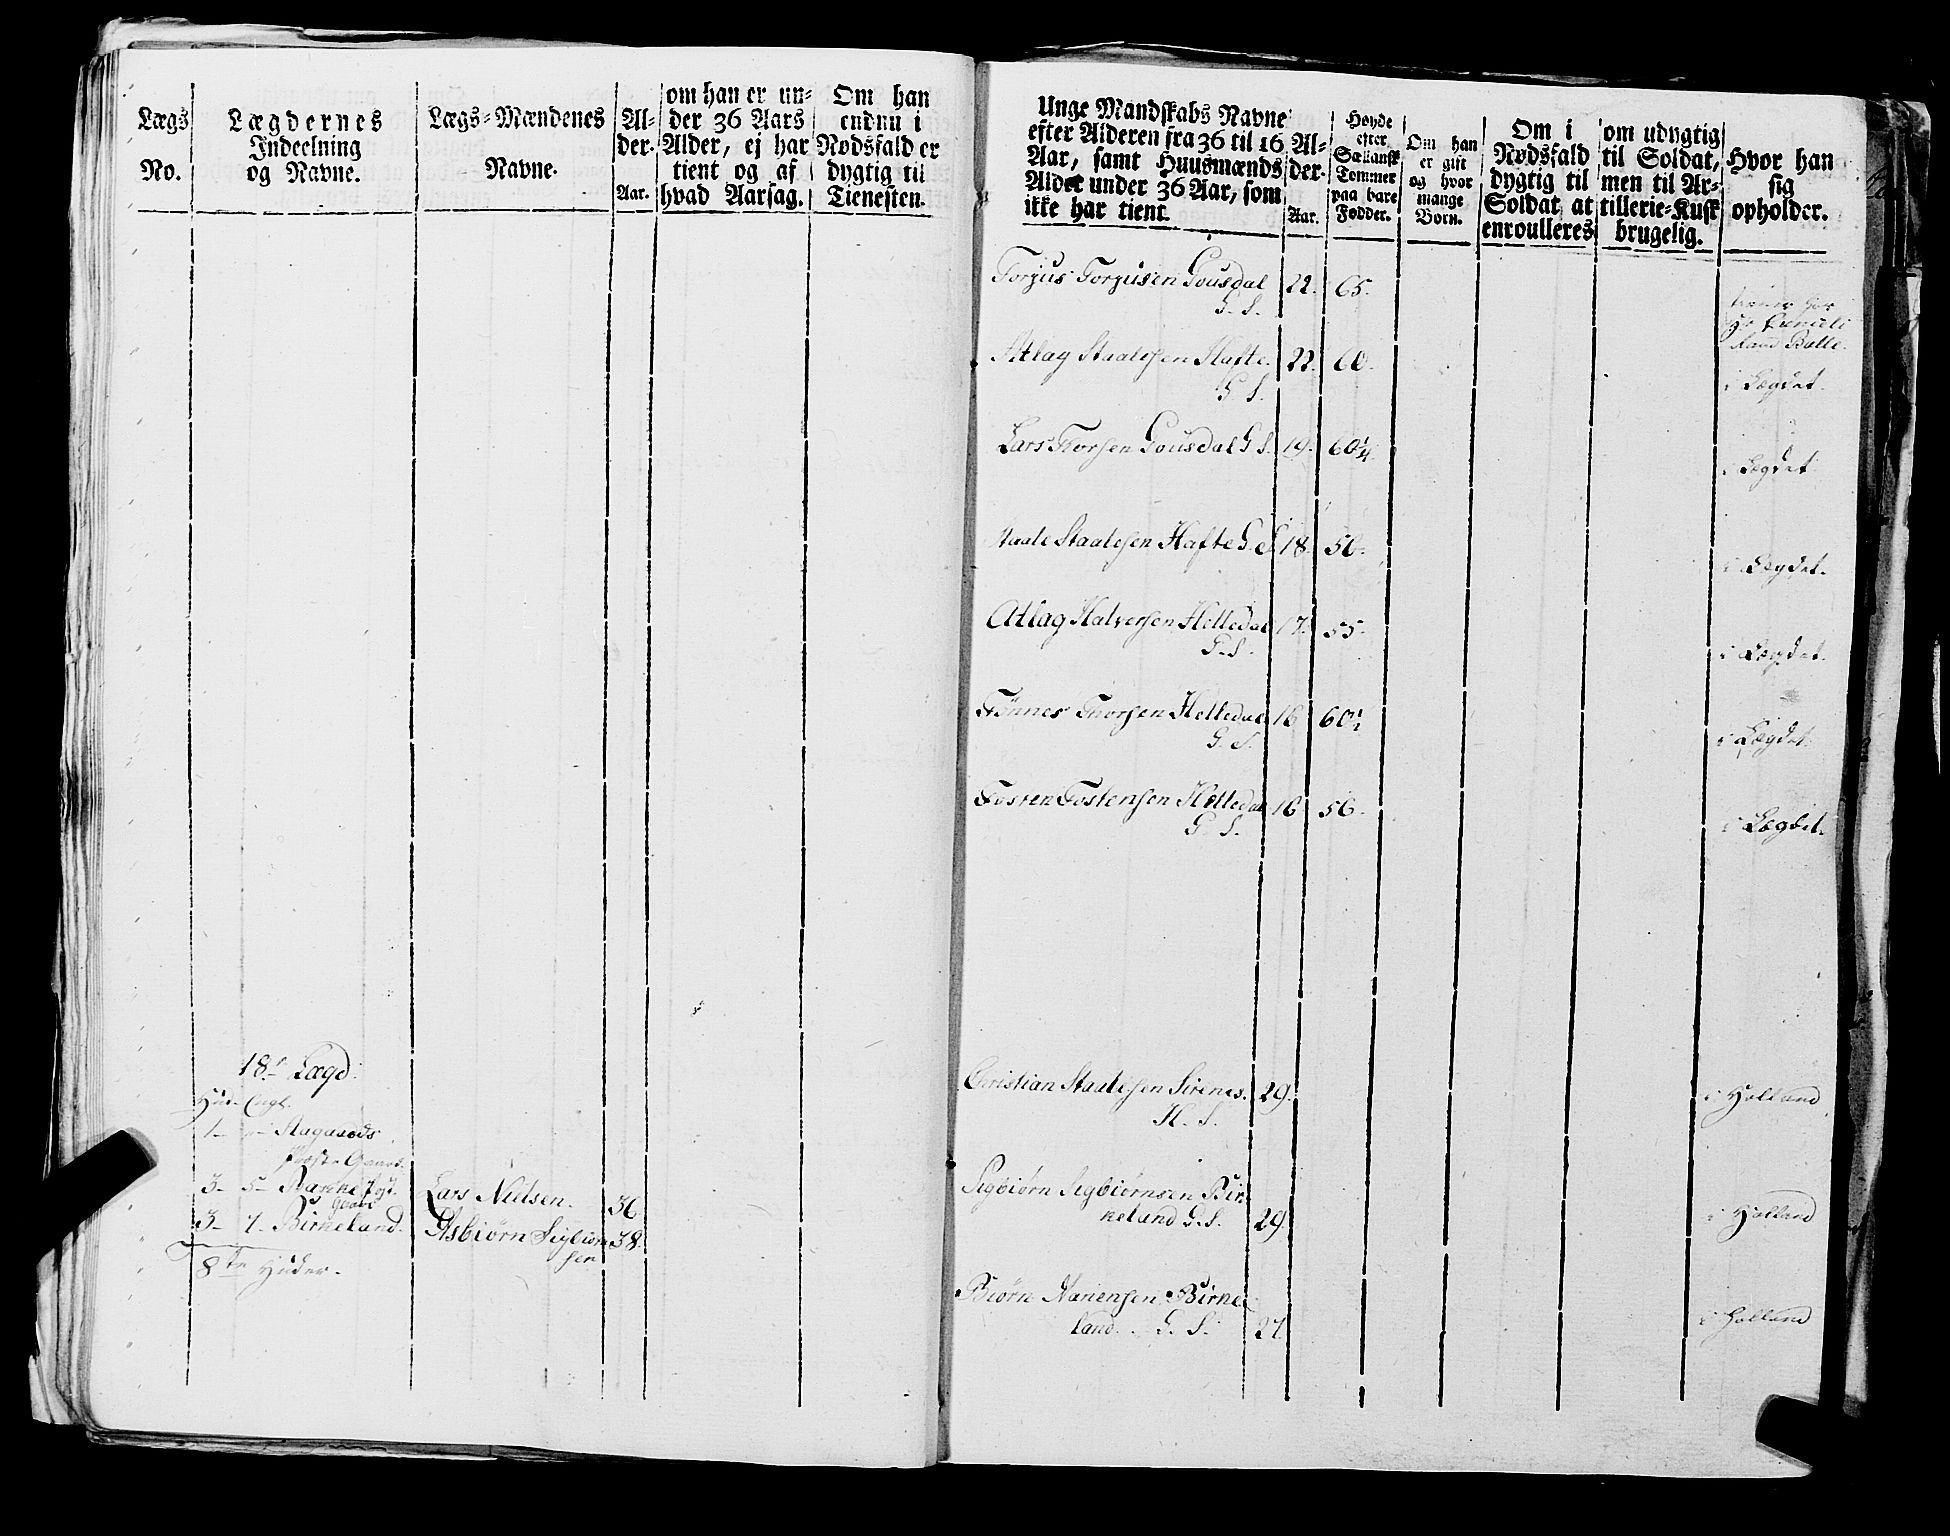 Lægs
No.
Lægdernes
Indeelning
og Navne.
Lægs-Mændenes
Navne.
Al-
der.
Aar.
om han er un-
der 36 Aars
Alder, ej har
tient og af
hvad Aarsag.
Om han
endnu i
Nødsfald er
dygtig til
Tienesten.
18de Lægd.
Hud. Engl.
Aagaards
3 - 5 -
Gaard
3 - 1 - Birkeland.
8te Huder.
Lars Nielsen. 36
Asbiørn Sigbiørn 38.
sen
Unge Mandskabs Navne
efter Alderen fra 36 til 16
Aar, samt Huusmænds
Alder under 36 Aar, som
ikke har tient.
Al-
der.
Aar.
Høyde
efter
Sællansk
Tommer
paa bare
Fødder.
Om han
er gift
og hvor
mange
Børn.
Om i
Nødsfald
dygtig til
Soldat, at
enroulleres
om udygtig
til Soldat,
men til Ar-
tillerie-Kusk
brugelig.
Hvor han
sig
opholder.
Torjus Torjusen Gousdal 22. 65.
G. S.
tiener hos
Atlag Staalesen Hafte. 22. 60.
G. S. i Lægdet.
Lars Thorsen Gousdal G. S. 19. 60 1/4
i Lægdet
Staale Staalesen Hafte G. S. 18. 56.
i Lægdet.
Atlag Halversen Helledal 17. 55.
G. S. i Lægdet.
Tønnes Thorsen Helledal 16 60 1/2
G. S. i Lægdet.
Tosten Tostensen Helledal 16 56.
G. S. i Lægdet.
Christian Staalesen Sirenes. 29.
H. S. i Holland
Sigbiørn Sigbiørnsen Bir-
keland G. S. 29. i Holland
Biørn Hanensen Birke-
land. G. S. 27 i Holland